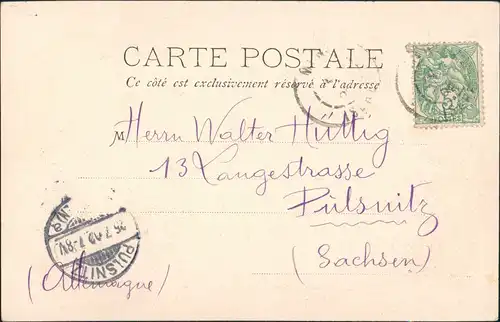 CARTE POSTALE
Ce côté est exclusivement réservé à l'adresse
M Herrn Walter Huttig
13 Langestrasse
Pulsnitz
(Sachsen)
(Allemagne)
PULSNITZ